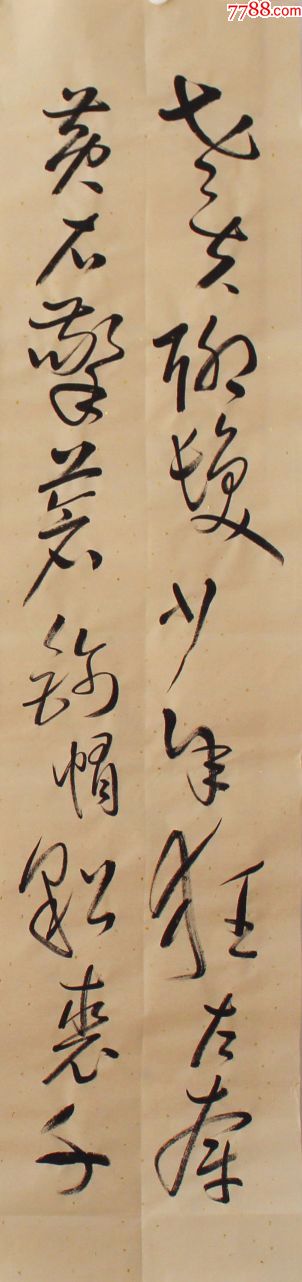 7788.com
老夫聊發少年狂左牽
黃右擎蒼錦帽貂裘千